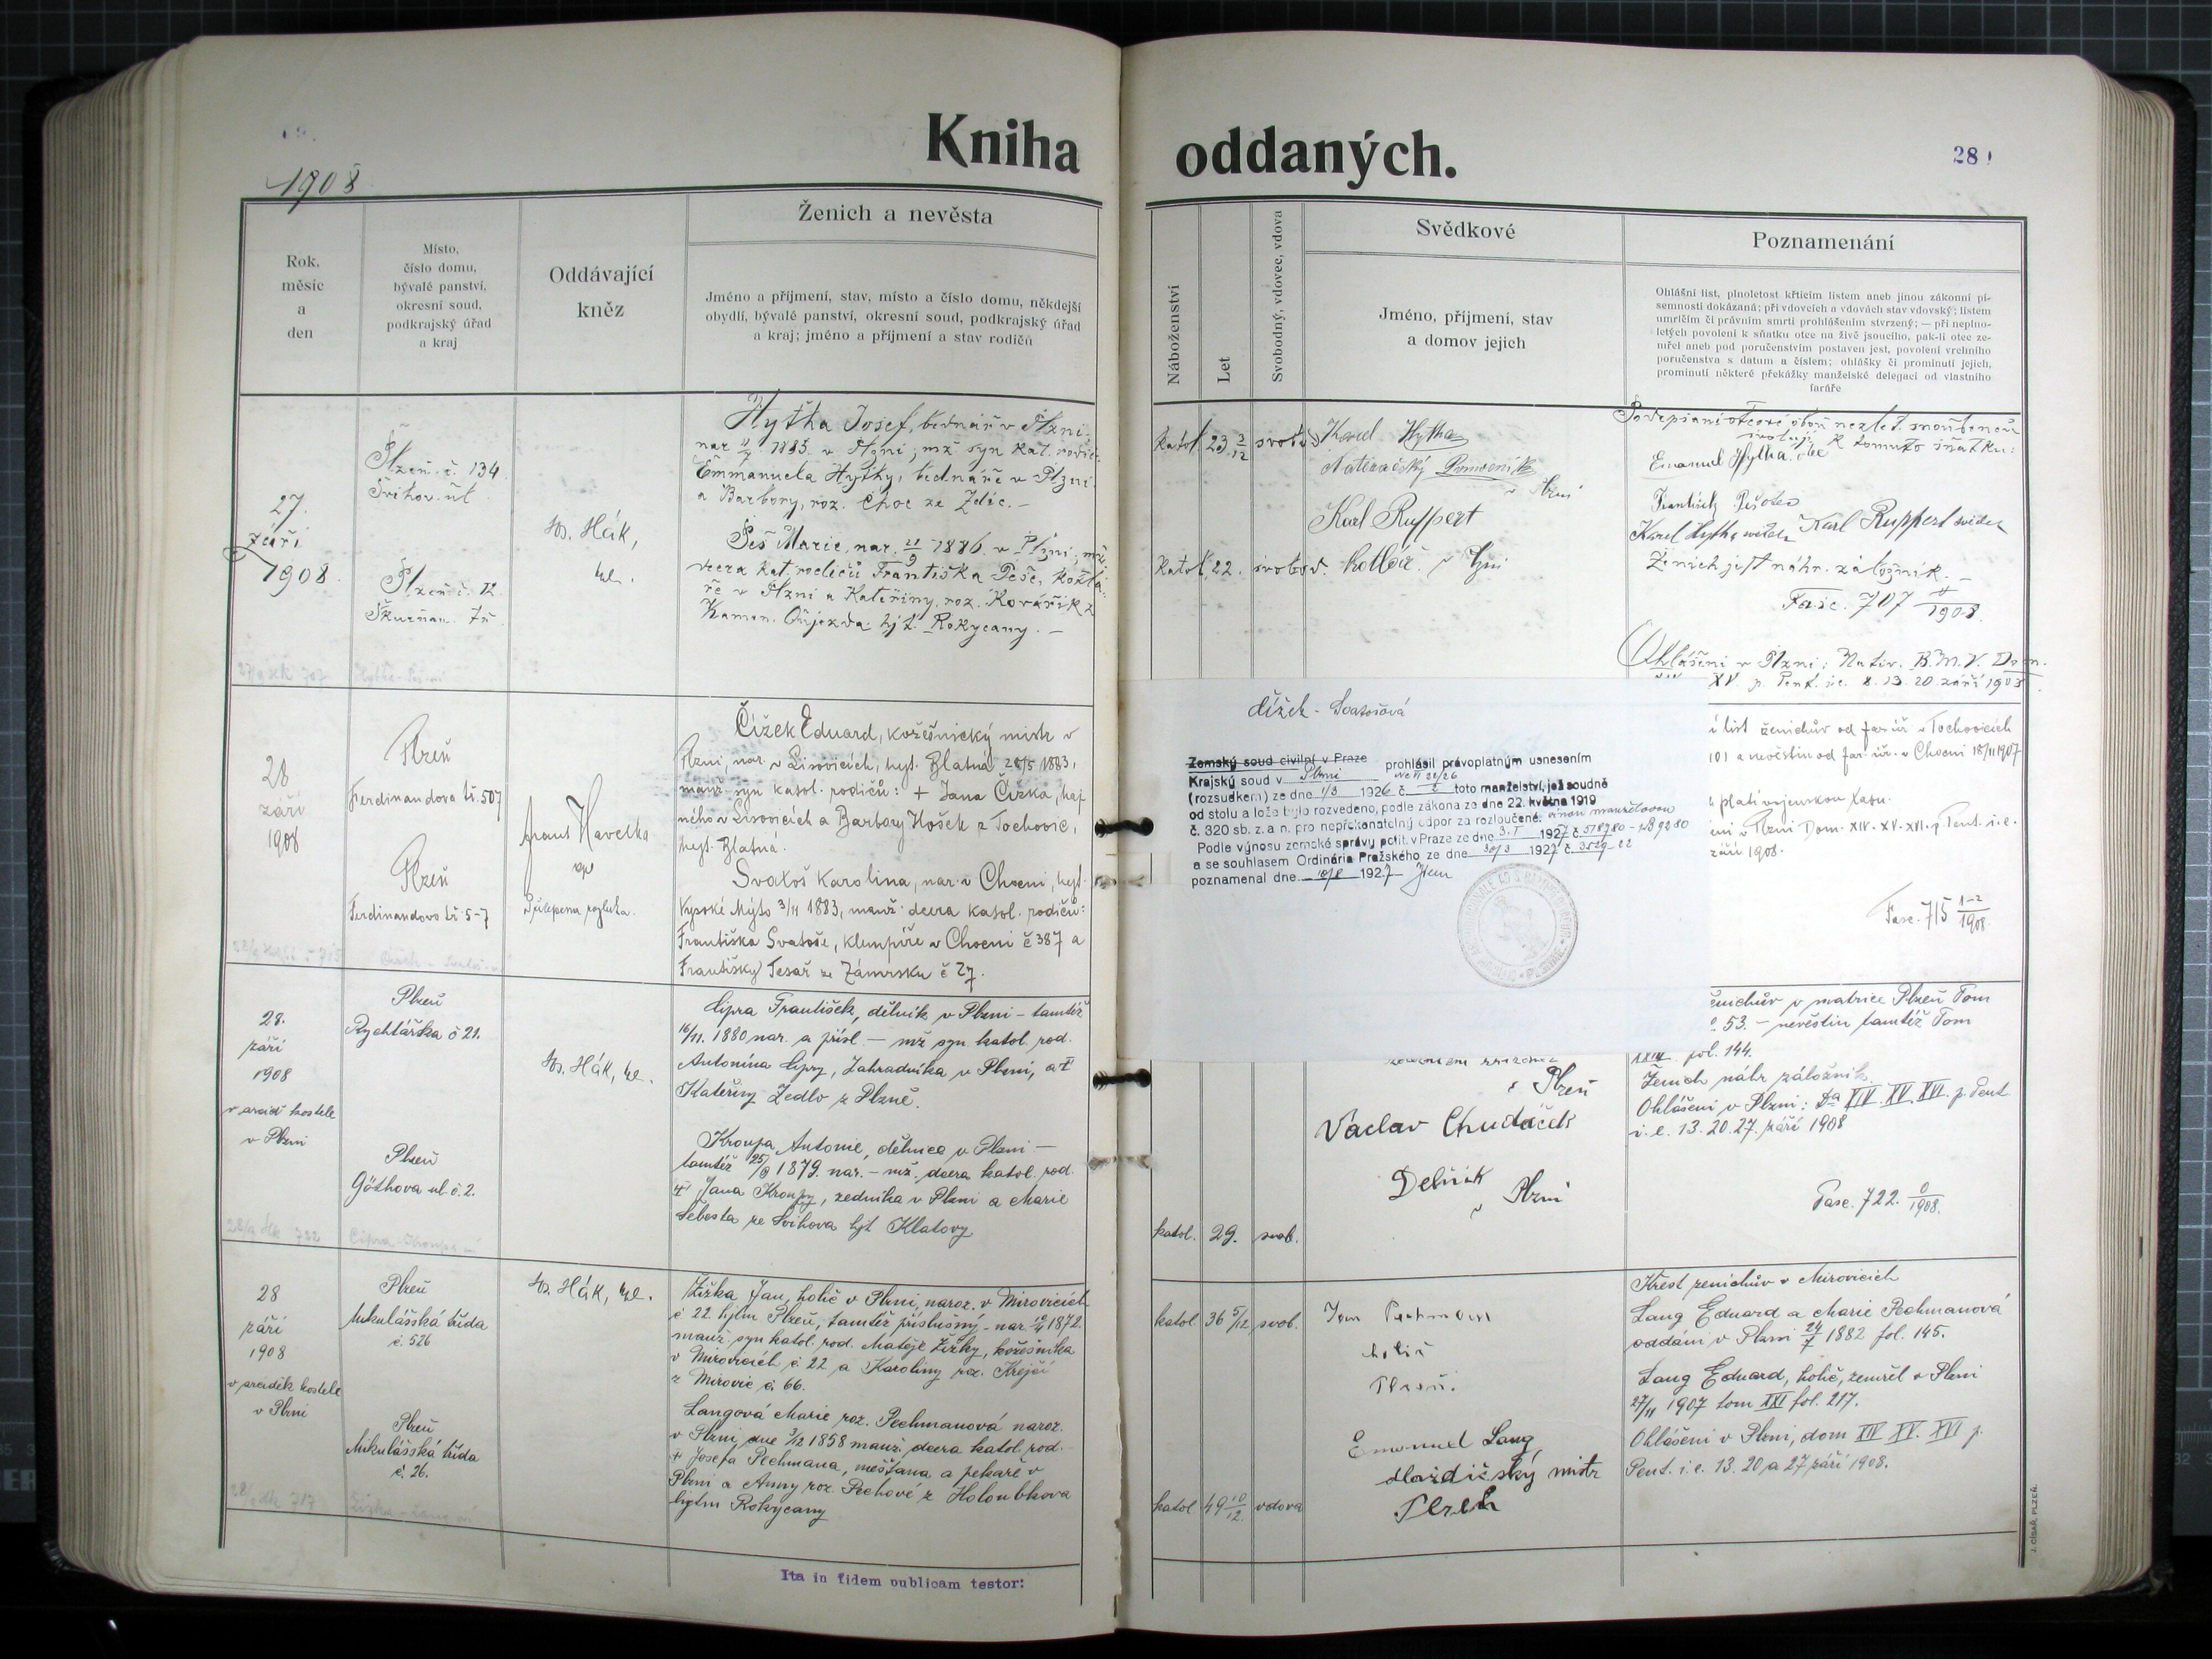 Kniha oddaných.
1908
28
Rok,
měsíc
a
den
Místo,
číslo domu,
bývalé panství,
okresní soud,
podkrajský úřad
a kraj
Oddávající
kněz
Ženich a nevěsta
Jméno a příjmení, stav, místo a číslo domu, někdejší
obydlí, bývalé panství, okresní soud, podkrajský úřad
a kraj; jméno a příjmení a stav rodičů
Náboženství
Let
Svobodný, vdovec, vdova
Svědkové
Jméno, příjmení, stav
a domov jejich
Poznamenání
Ohlášní list, plnoletost křticím listem aneb jinou zákonní pí-
semností dokázaná; při vdovcích a vdovách stav vdovský; listem
umrlčím či právním smrti prohlášením stvrzený; — při neplno-
letých povolení k sňatku otce na živě jsoucího, pak-li otec ze-
mřel aneb pod poručenstvím postaven jest, povolení vrchního
poručenstva s datum a číslem; ohlášky či prominutí jejich,
prominutí některé překážky manželské delegací od vlastního
faráře
27.
září
1908.
Plzeň č. 134
Plzeň č. 12
Hák,
Hyťha Josef, bednář v Plzni,
v Plzni, mž. syn kat. rodičů
Emmanuela Hyťhy, bednáře v Plzni
a Barbory, roz. Choc ze Zdic. —
Peš Marie, nar. 21/9 1886. v Plzni, mž.
dcera kat. rodičů Františka Peše,
v Plzni a Kateřiny, roz. Kovářík z
Kamen. Újezda hjt. Rokycany. —
katol. 23 3/12 svob.
katol. 22. svobod.
Karel Hytha
v Plzni
Karl Ruppert
v Plzni
k tomuto sňatku:
Emanuel Hytha otec
František Peš otec
Karel Hytha Karl Ruppert
Ženich jest náhr. záložník. —
Fasc. 707 1908.
Ohlášeni v Plzni: Nativ. B.M.V. Dom.
XV. p. Pent. i.e. 8. 13. 20. září 1908
28
září
1908
Plzeň
Ferdinandova tř. 507
Plzeň
Ferdinandova tř. 5-7
Havelka
Čížek Eduard, kožešnický mistr v
Plzni, nar. v Lisovicích, hejt. Blatná, 28/5 1883,
manž. syn katol. rodičů: + Jana Čížka, haj
ného v Lisovicích a Barbory Hošek z Tochovic,
hejt. Blatná.
Svatoš Karolina, nar. v Chocni, hejt.
Vysoké Mýto 3/11 1883, manž. dcera katol. rodičů:
Františka Svatoše, klempíře v Chocni č 387 a
Františky Tesař ze Zámrsku č 27.
čížek - Svatošová
Zemský soud civilní v Praze
Krajský soud v Plzni prohlásil právoplatným usnesením
(rozsudkem) ze dne 1/3 1926 č. toto manželství, jež soudně
od stolu a lože bylo rozvedeno, podle zákona ze dne 22. května 1919
č. 320 sb. z. a n. pro nepřekonatelný odpor za rozloučené.
Podle výnosu zemské správy polit. v Praze ze dne 3. I. 1927 č.
a se souhlasem Ordinária Pražského ze dne 30/3 1927 č.
poznamenal dne 1927
í list ženichův od far. úř. v Tochovicích
101 a nevěstin od far. úř. v Chocni 18/11 1907
eni v Plzni Dom. XIV. XV. XVI. p. Pent. i.e.
září 1908.
Fasc. 715 1-2/1908.
28.
září
1908
v arcid. kostele
v Plzni
Plzeň
Rychtářka č 21.
Plzeň
Göthova ul. č. 2.
Hák,
Cipra František, dělník v Plzni — tamtéž
16/11. 1880 nar. a přísl. — mž. syn katol. rod.
Antonína Cipry, zahradníka v Plzni, a †
Kateřiny Zedlo z Plzně.
Kroupa Antonie, dělnice v Plzni —
tamtéž 1879. nar. — mž. dcera katol. rod.
† Jana Kroupy, zedníka v Plzni a Marie
Šebesta ze Švihova hjt. Klatovy
katol. 29. svob.
v Plzeň
Vaclav Chudáček
Delník
v Plzni
ženichův v matrice Plzeň Tom
53. — nevěstin tamtéž Tom
XXIII fol. 144.
Ženich náhr. záložník.
Ohlášeni v Plzni: Da XIV. XV. XVI. p. Pent
i.e. 13. 20. 27. září 1908
Fasc. 722. 1908.
28
září
1908
v arciděk. kostele
v Plzni
Plzeň
Mikulášská třída
č. 526
Plzeň
Mikulášská třída
č. 26.
Hák,
Žižka Jan, holič v Plzni, naroz. v Mirovicích
č 22 hejtm. Plzeň, tamtéž příslušný — nar. 1872.
manž. syn katol. rod. Matěje Žižky, kožešníka
v Mirovicích č. 22 a Karoliny roz. Krejčí
z Mirovic č. 66.
Langová Marie roz. Pechmanová naroz.
v Plzni dne 3/12 1858 manž. dcera katol. rod.
† Josefa Pechmana, měšťana a pekaře v
Plzni a Anny roz. Pechové z Holoubkova
hejtm. Rokycany
katol. 36 5/12 svob.
katol. 49 10/12. vdova
Jan Pechman
holič
Plzeň.
Emanuel Lang
dlaždičský mistr
Plzeň
Křest ženichův v Mirovicích
Lang Eduard a Marie Pechmanová
oddáni v Plzni 24/7 1882 fol. 145.
Lang Eduard, holič, zemřel v Plzni
27/11 1907 tom XXI fol. 217.
Ohlášeni v Plzni, dom XIV XV. XVI p.
Pent. i.e. 13. 20 a 27 září 1908.
Ita in fidem publicam testor:
J. CÍSAŘ, PLZEŇ.